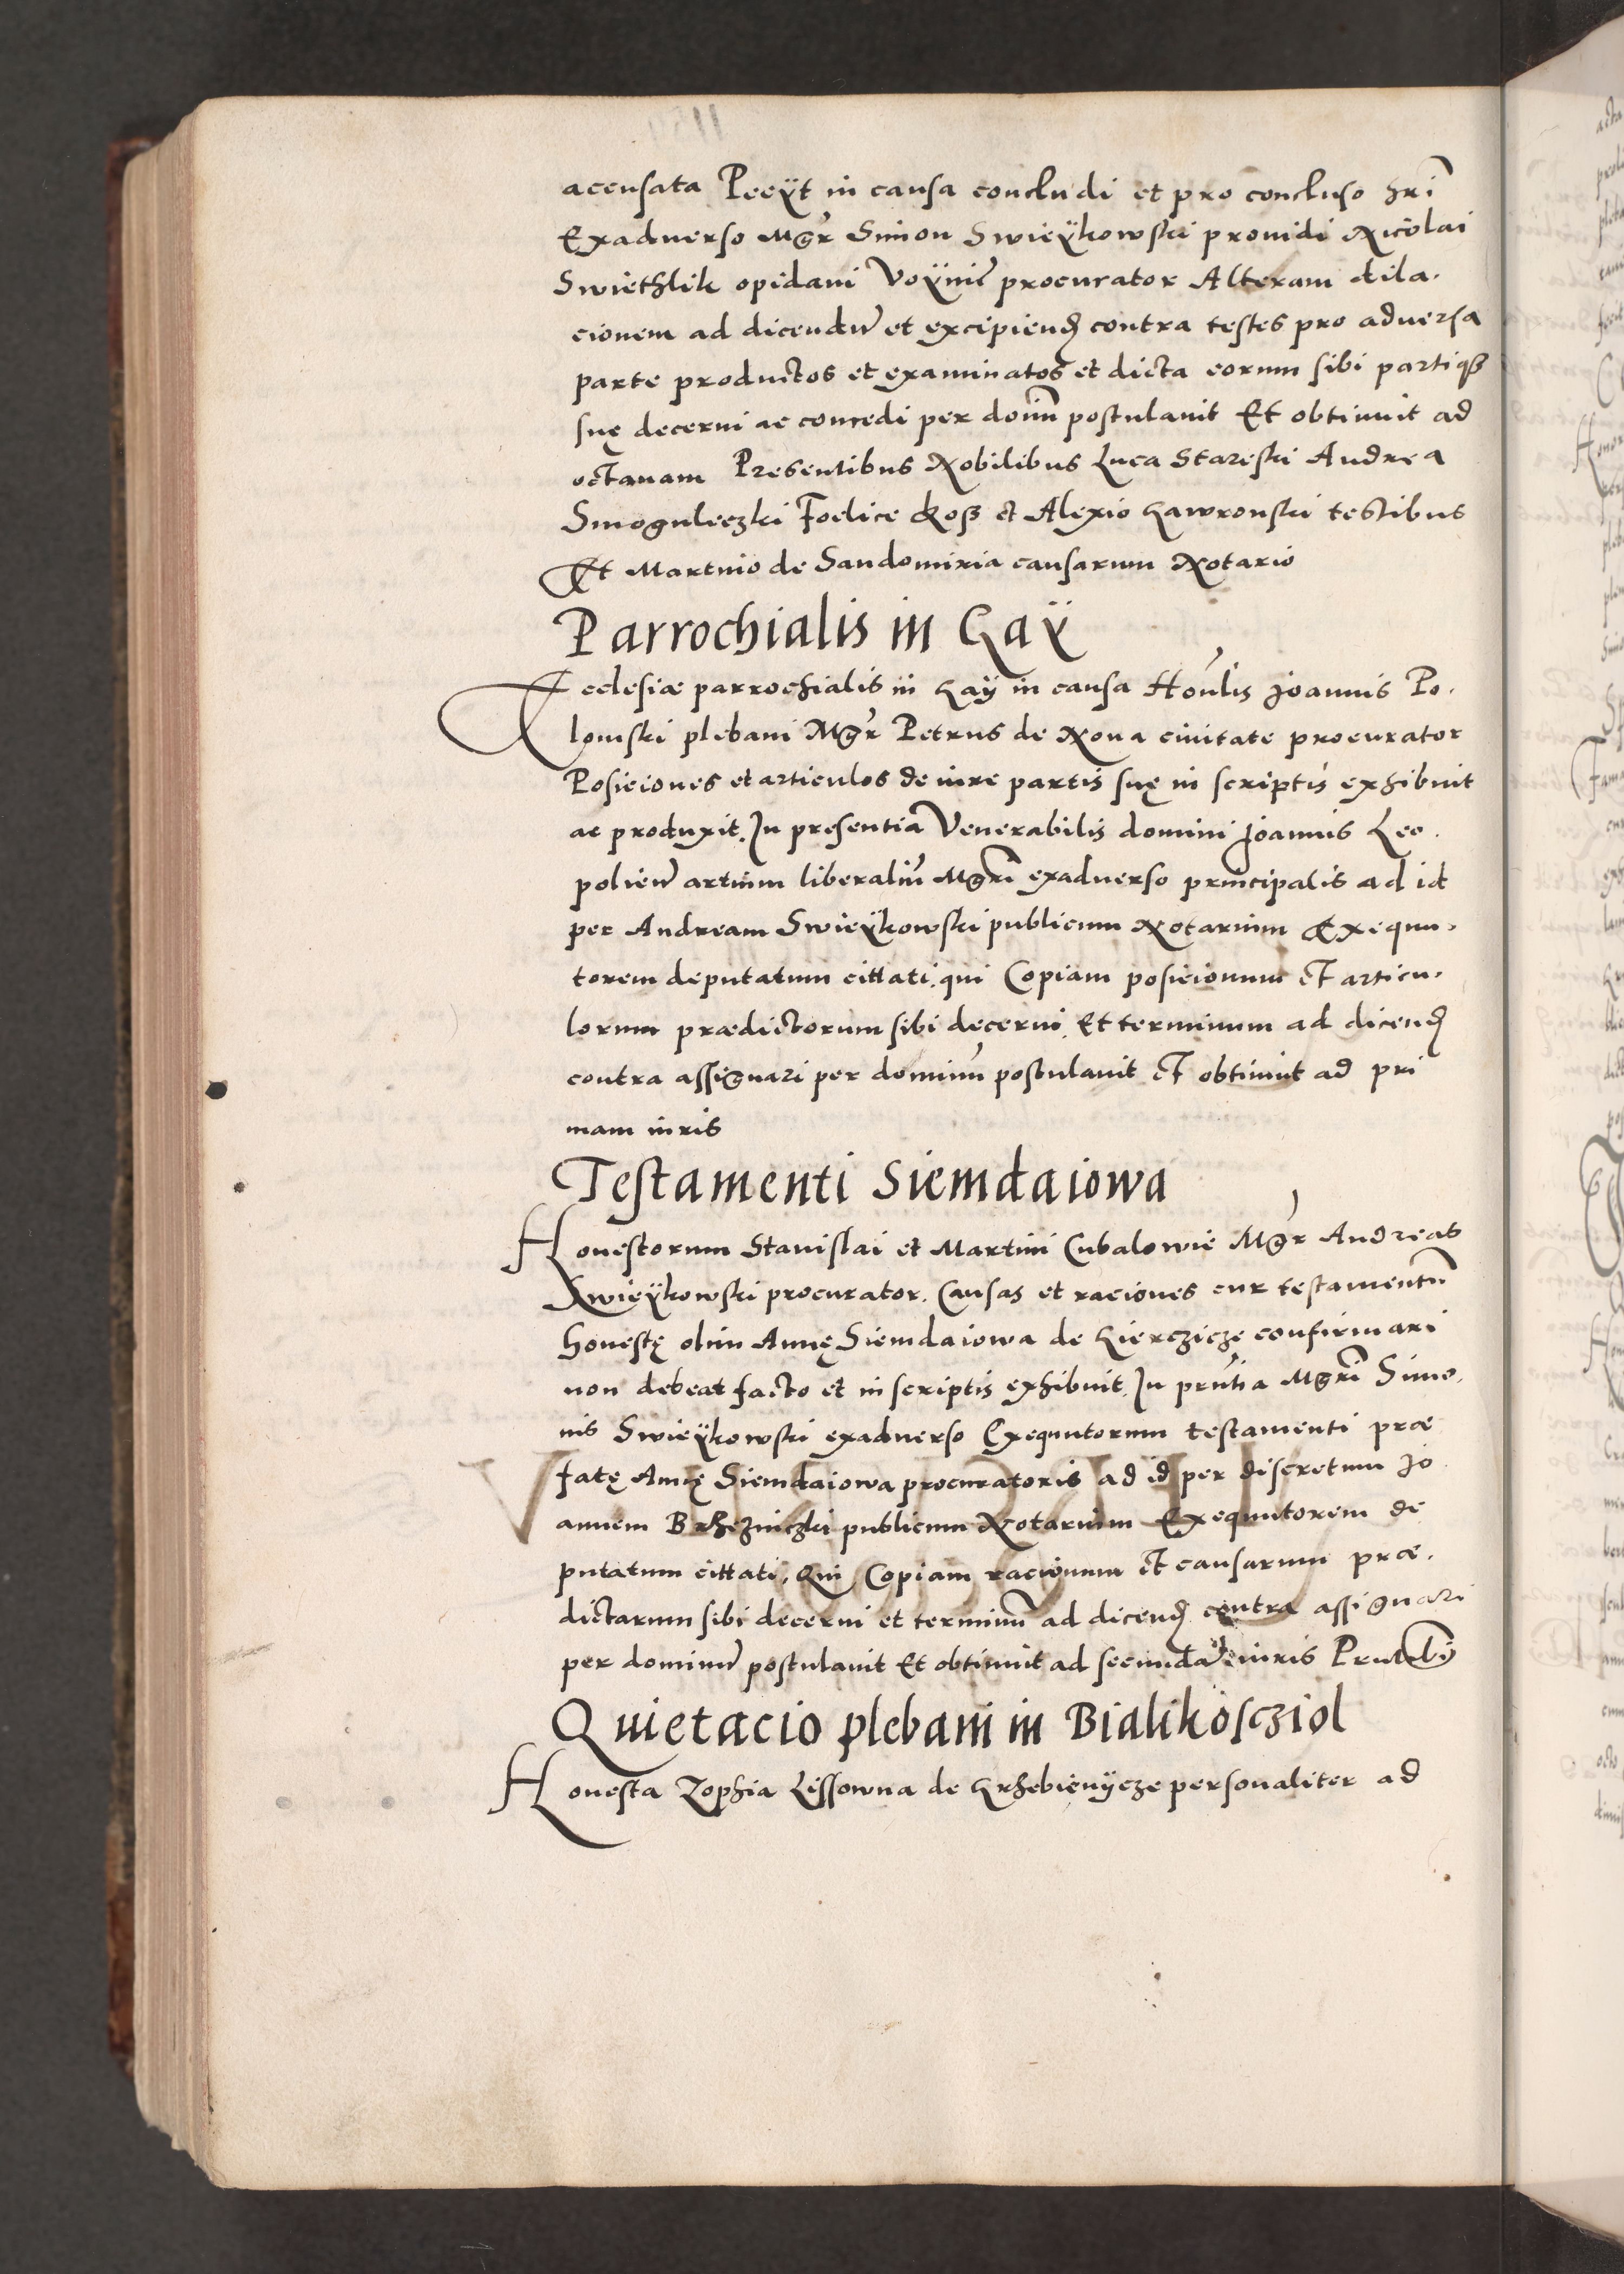 acensata Peeÿt in causa concludi et pro concluso hri
Exaduerso Mgr Simon Swieÿkowski prouidi Nicolai
Swiethlik opidani Voÿnic procurator Alteram dila.
cionem ad dicendum et excipiend contra testes pro aduersa
parte productos et examinatos et dicta eorum sibi partiqꝫ
suę decerni ac concedi per dnm postulauit Et obtinuit ad
octauam Presentibus Nobilibus Luca Stareski Andrea
Smoguleczki Foelice Koss et Alexio Gawronski testibus
Et Martino de Sandomiria causarum Notario
Parrochialis in Gaÿ
Ecclesiæ parrochialis in Gaÿ in causa Honlis Joannis Po.
lomski plebani Mgr Petrus de Noua ciuitate procurator
Posiciones et articulos de iure partis suę in scriptis exhibuit
ac produxit. In presentia Venerabilis domini Joannis Leo.
polien artium liberalium Mgri exaduerso principalis ad id
per Andream Swieÿkowski publicum Notarium Exequu.
torem deputatum cittati. qui Copiam posicionum Et articu.
lorum prædictorum sibi decerni. Et terminum ad dicend
contra assignari per dominum postulauit Et obtinuit ad pri
mam iuris
Testamenti Siemdaiowa
Honestorum Stanislai et Martini Cubalowie Mgr Andreas
Swieÿkowski procurator. Causas et raciones cur testamentum
honestę olim Annę Siemdaiowa de Gierczicze confirmari
non debeat facto et in scriptis exhibuit. In prntia Mgri Simo.
nis Swieÿkowski exaduerso Exequutorum testamenti præ
fatę Annę Siemdaiowa procuratoris ad id per discretum Jo.
annem Brzezniczki publicum Notarium Exequutorem de
putatum cittati. Qui Copiam racionum Et causarum præ.
dictarum sibi decerni et terminum ad dicend contra assignari
per dominum postulauit Et obtinuit ad secundam iuris Prntibus
Quietacio plebani in Bialikoscziol
Honesta Zophia Lissowna de Grzebienÿcze personaliter ad